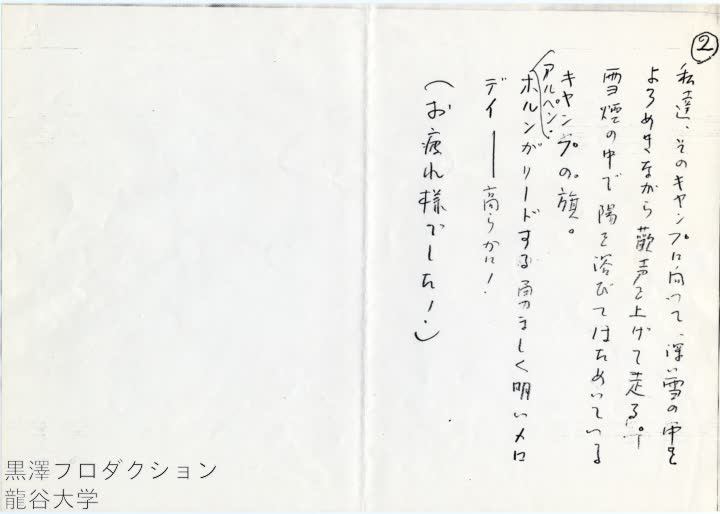 ②
私達、そのキャンプに向って、深い雪の中を
よろめきながら歓声を上げて走る。
雪煙の中で陽を浴びてはためいている
キャンプの旗。
アルペン・
ホルンがリードする勇ましく明いメロ
デイ――高らかに！
（お疲れ様でした！）
黒澤プロダクション
龍谷大学